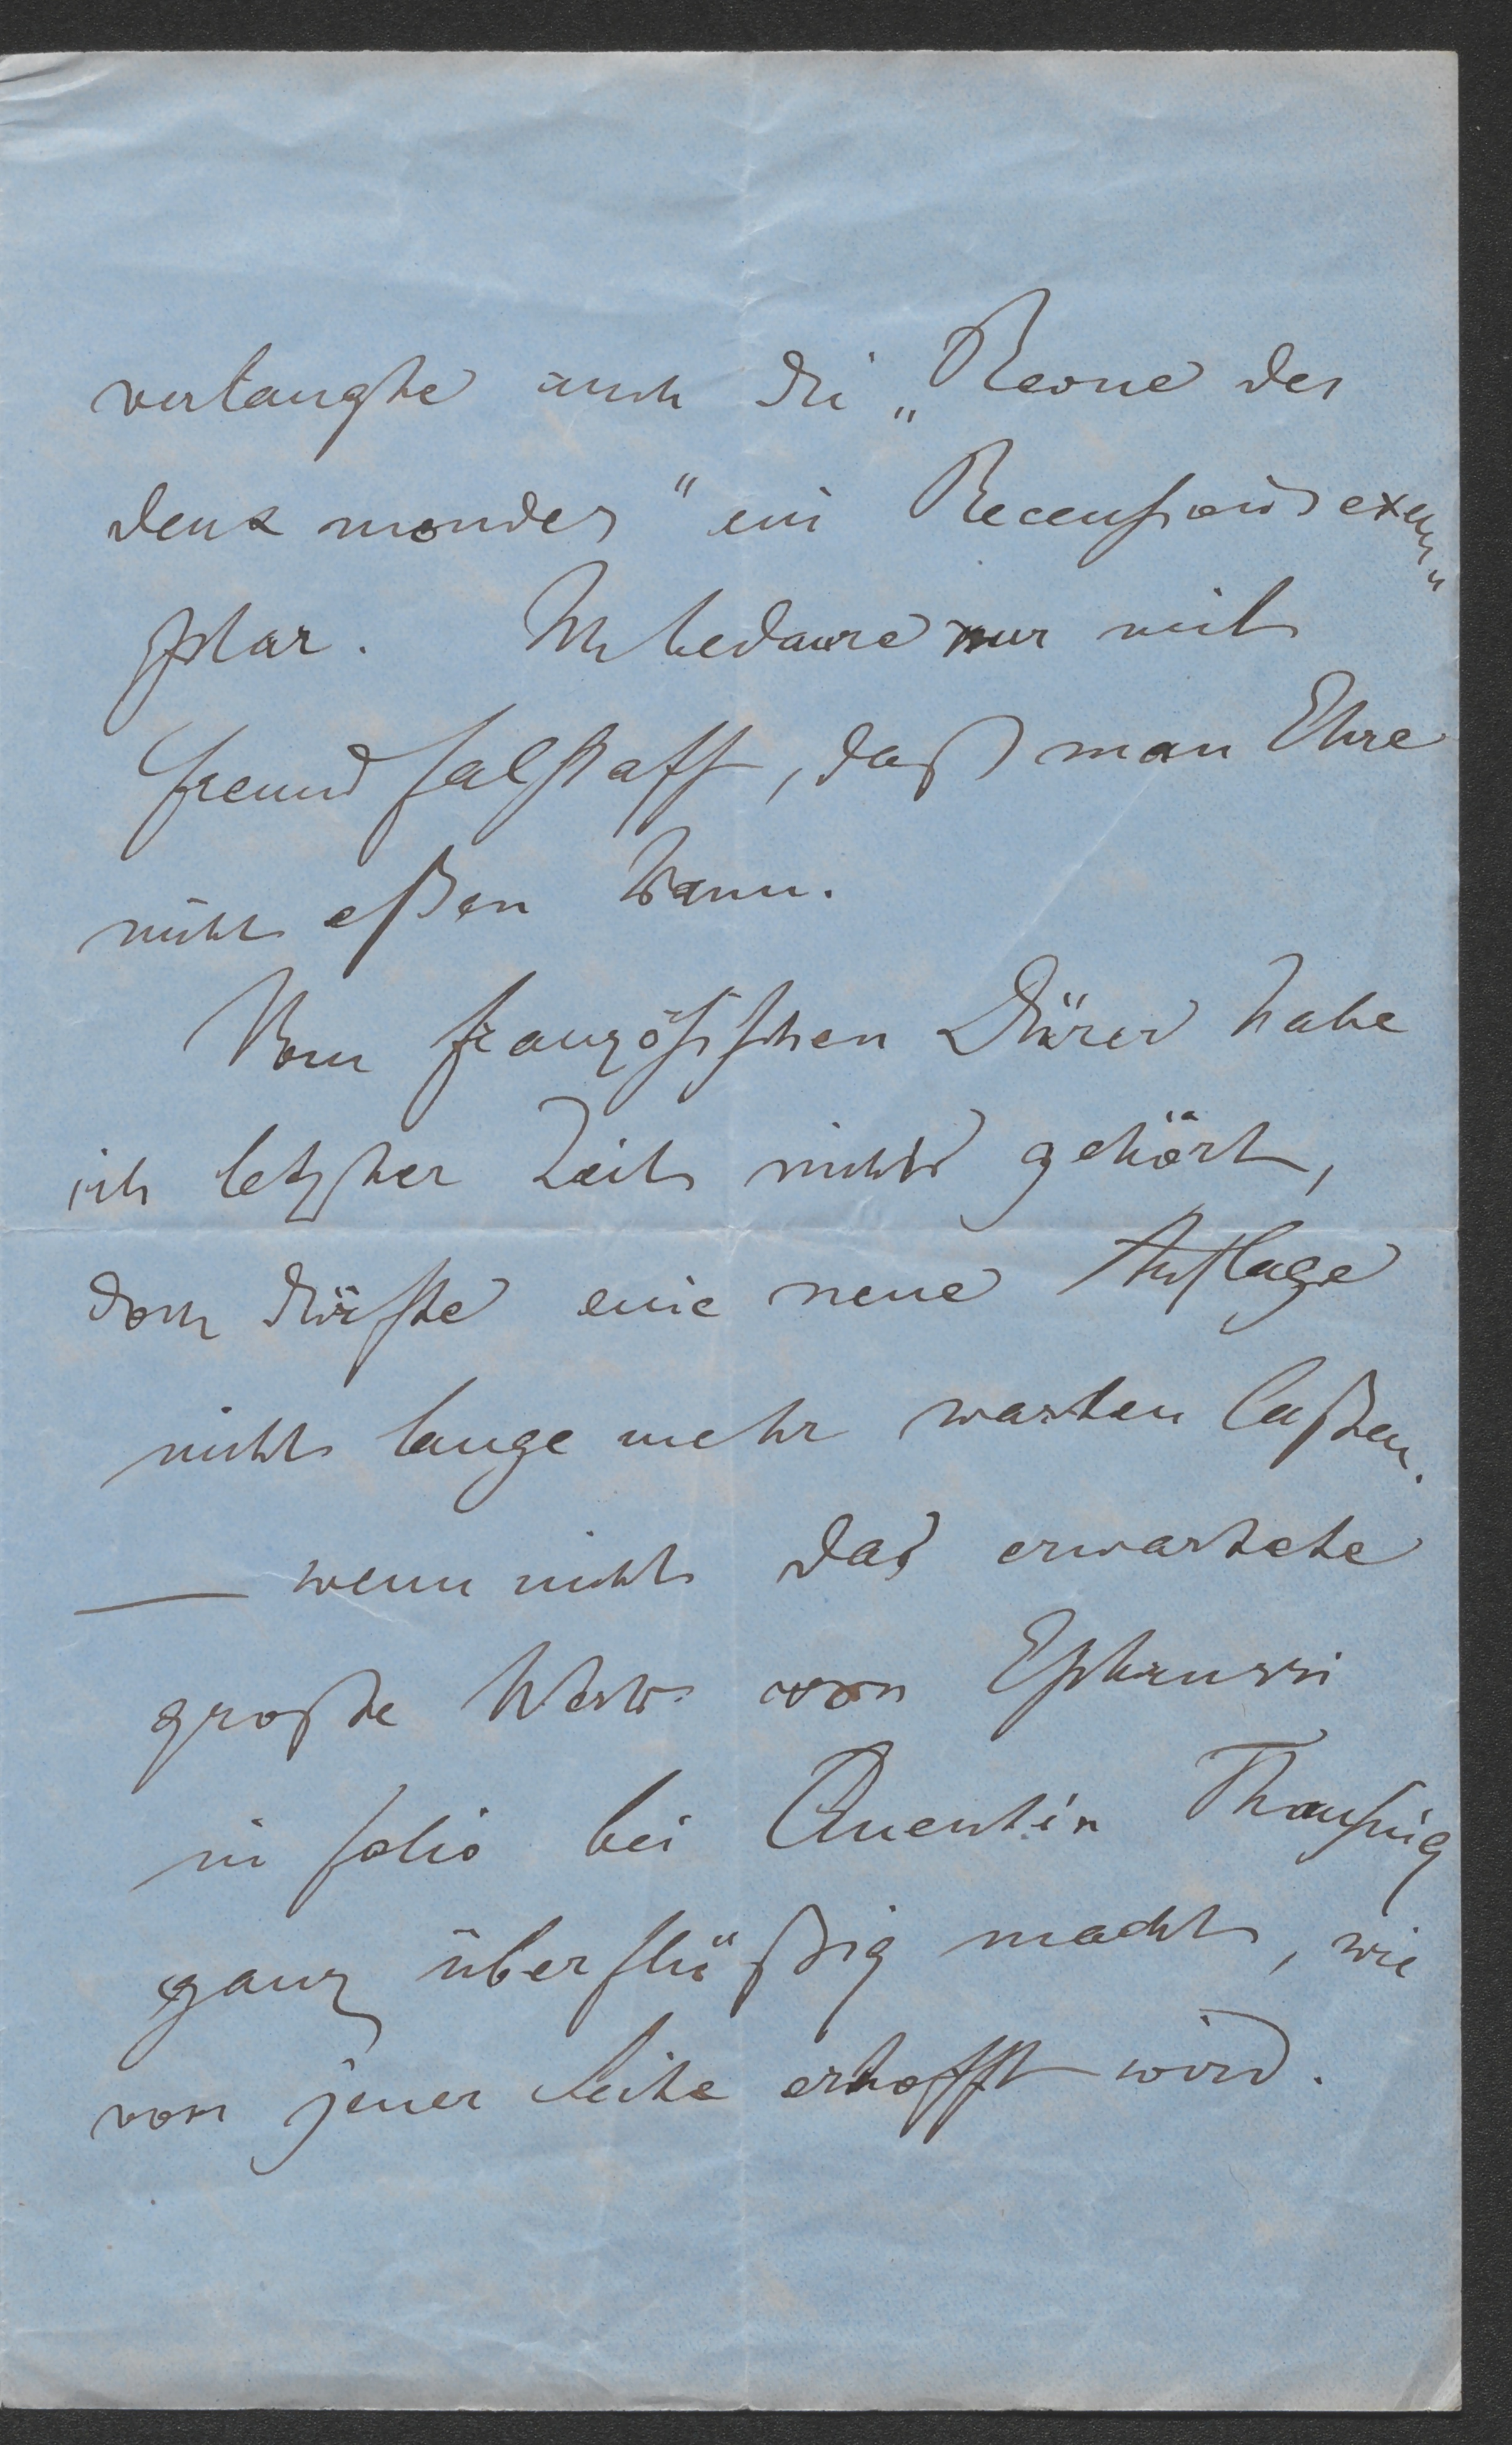 verlangte auch die „Revue des
deux mondes" ein Recensionsexem„
plar. Ich bedaure nur mit
Freund Falstaff, daß man Ehre
nicht eßen kann.
Vom französischen Dürer habe
ich letzter Zeit nichts gehört,
doch dürfte eine neue Auflage
nicht lange mehr warten laßen.
— wenn nicht das erwartete
große Werk von Ephrussi
in folio bei Quentin Thausing
ganz überflüßig macht, wie
von jener Seite erhofft wird.